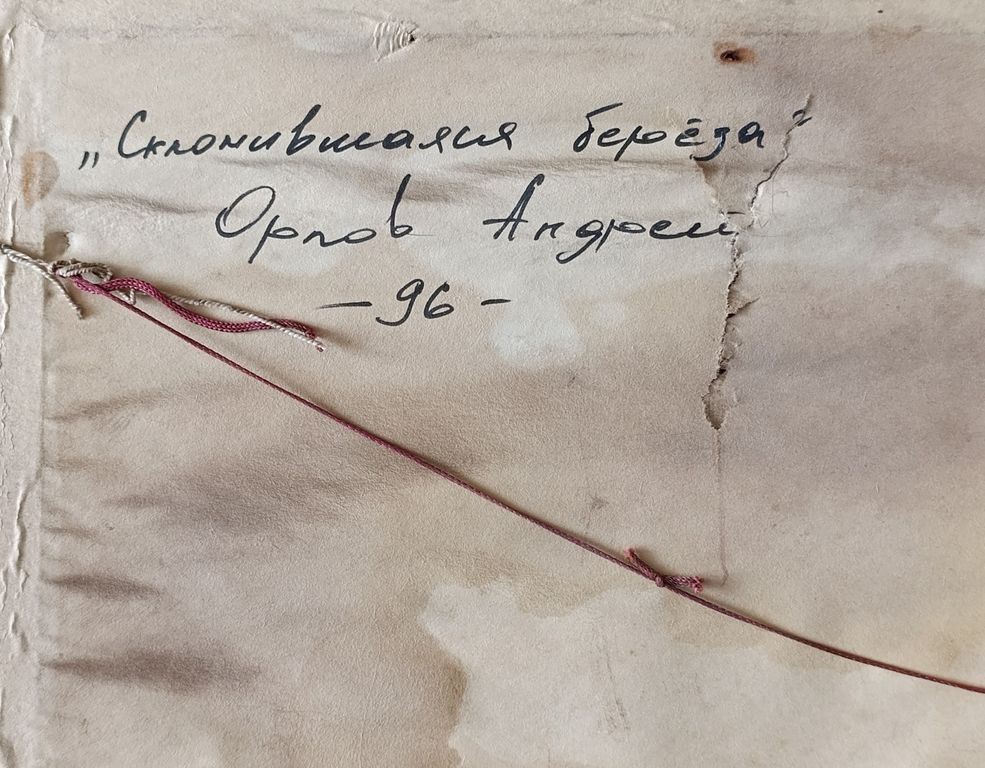 „Склонившаяся берёза"
Орлов Андрей
- 96 -